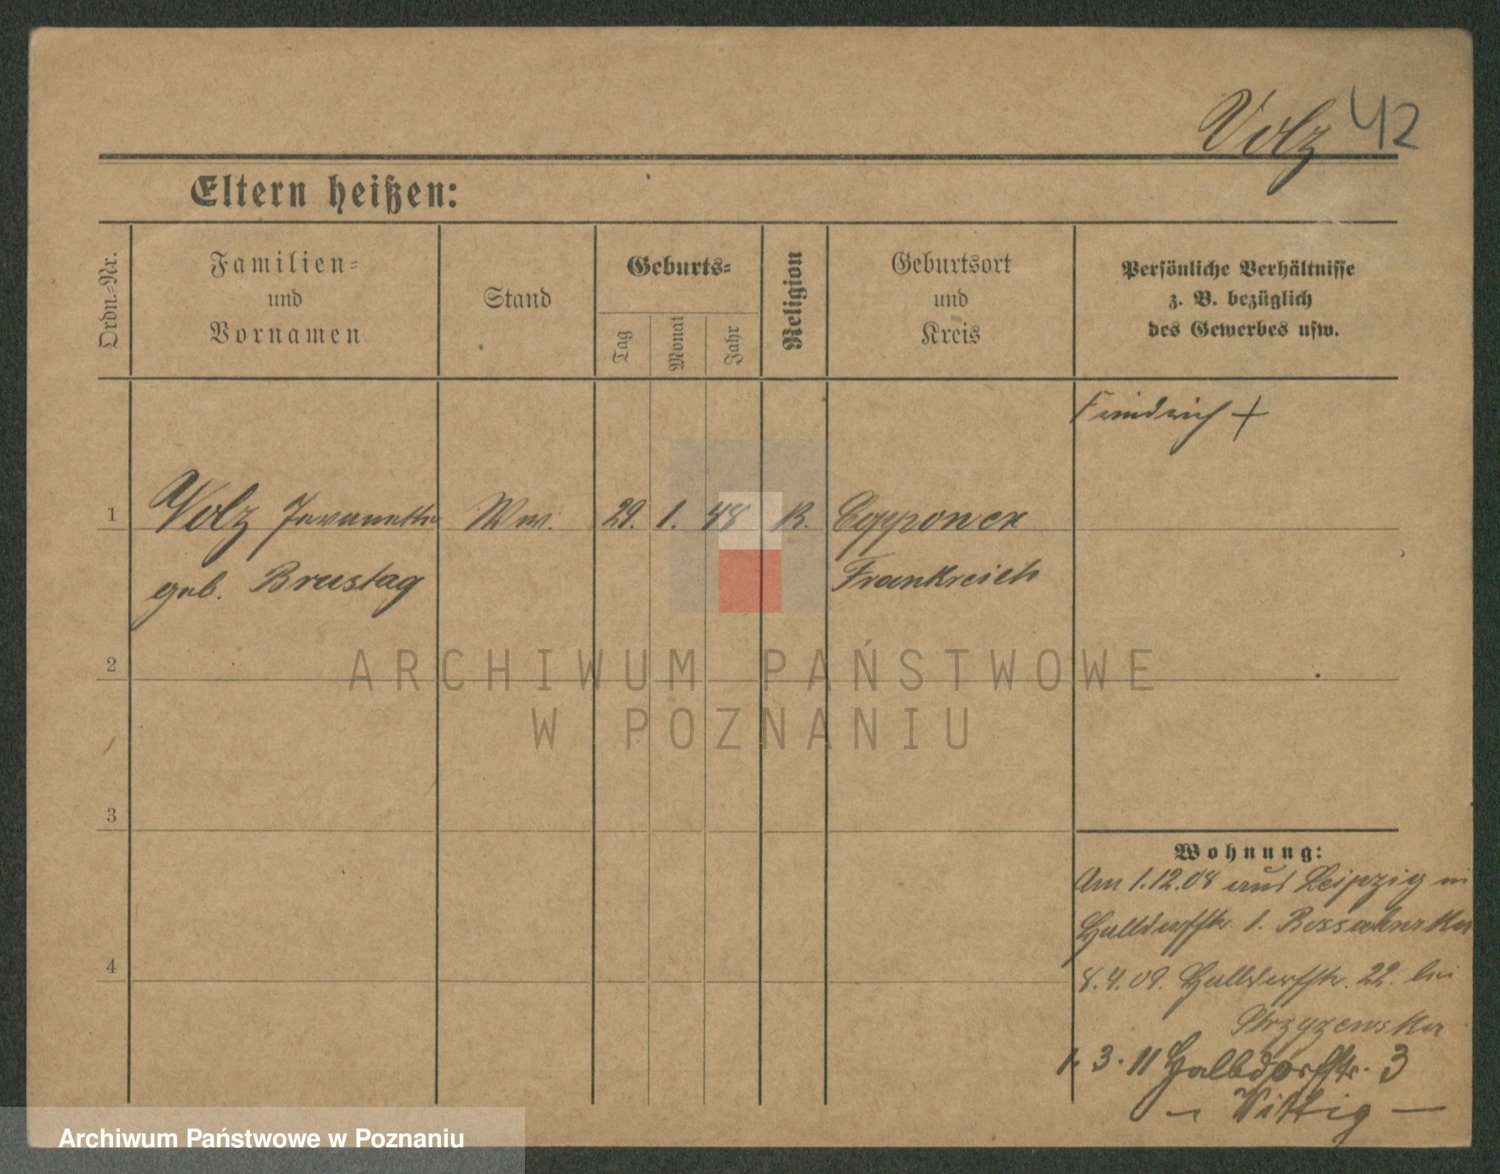 Volz 42
Eltern heißen:
Ordn.-Nr.
Familien-
und
Vornamen
Stand
Geburts-
Tag
Monat
Jahr
Religion
Geburtsort
und
Kreis
Persönliche Verhältnisse
z. B. bezüglich
des Gewerbes usw.
Friedrich +
1 Volz Ww. 29. 1. 48 R.
geb. Brustag Frankreich
2
3
4
ARCHIWUM PAŃSTWOWE
W POZNANIU
Wohnung:
Am 1.12.08 aus Leipzig in
Halldorfstr. 1.
8.4.09. Halldorfstr. 22. bei
Strzyzewska
1.3.11 Halbdorfstr. 3
- Wittig -
Archiwum Państwowe w Poznaniu